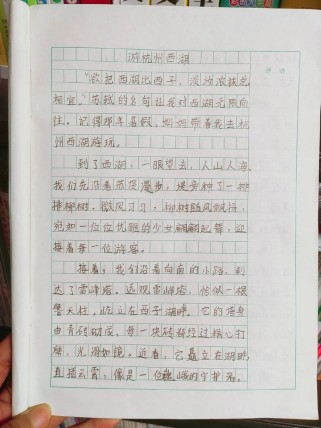 游杭州西湖
“欲把西湖比西子，淡妆浓抹总
相宜。”苏轼的名句让我对西湖无限向
往。记得那年暑假，妈妈带着我去杭
州西湖旅玩。
到了西湖，一眼望去，人山人海。
我们先沿着苏堤漫步，堤旁种了一排
排柳树，微风习习，柳树随风飘拂，
宛如一位位优雅的少女翩翩起舞，迎
接着每一位游客。
接着，我们沿着白南的小路，到
达了雷峰塔。远观雷峰塔，恰似一根
擎天柱，屹立在西子湖畔。它的塔身
由青砖砌成，每一块砖都经过精心打
磨，光滑如镜。近看，它矗立在湖畔，
直插云霄，像是一位巍峨的守护者。